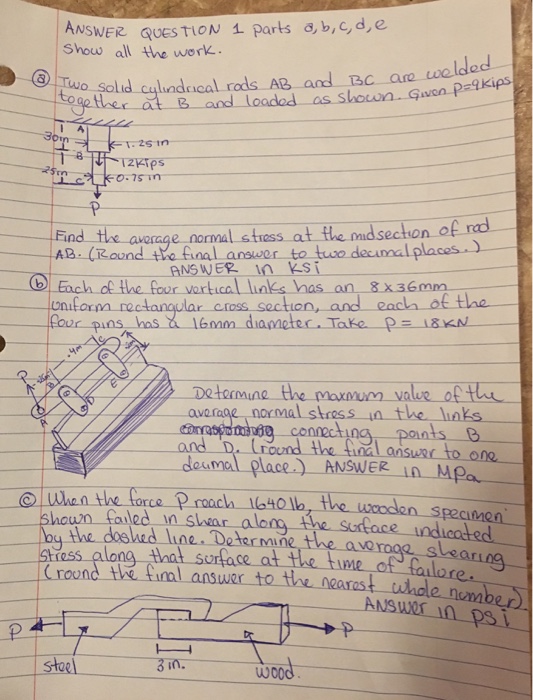 ANSWER QUESTION 1 parts a,b,c,d,e
Show all the work.
ⓐ Two solid cylindrical rods AB and BC are welded
together at B and loaded as shown. Given P=9Kips
A
30in
1.25in
B
12Kips
25in
C
0.75in
P
Find the average normal stress at the midsection of rod
AB. (Round the final answer to two decimal places.)
ANSWER in Ksi
ⓑ Each of the four vertical links has an 8x36mm
uniform rectangular cross section, and each of the
four pins has a 16mm diameter. Take P = 18KN
C
.4m
P
B
D
E
A
Determine the maxmum value of the
average normal stress in the links
connecting points B
and D. (round the final answer to one
decimal place.) ANSWER in MPa
ⓒ When the force P reach 1640lb, the wooden specimen
shown failed in shear along the surface indicated
by the dashed line. Determine the average shearing
stress along that surface at the time of failure.
(round the final answer to the nearest whole number).
ANSWER in psi
P
P
steel
3in.
wood.